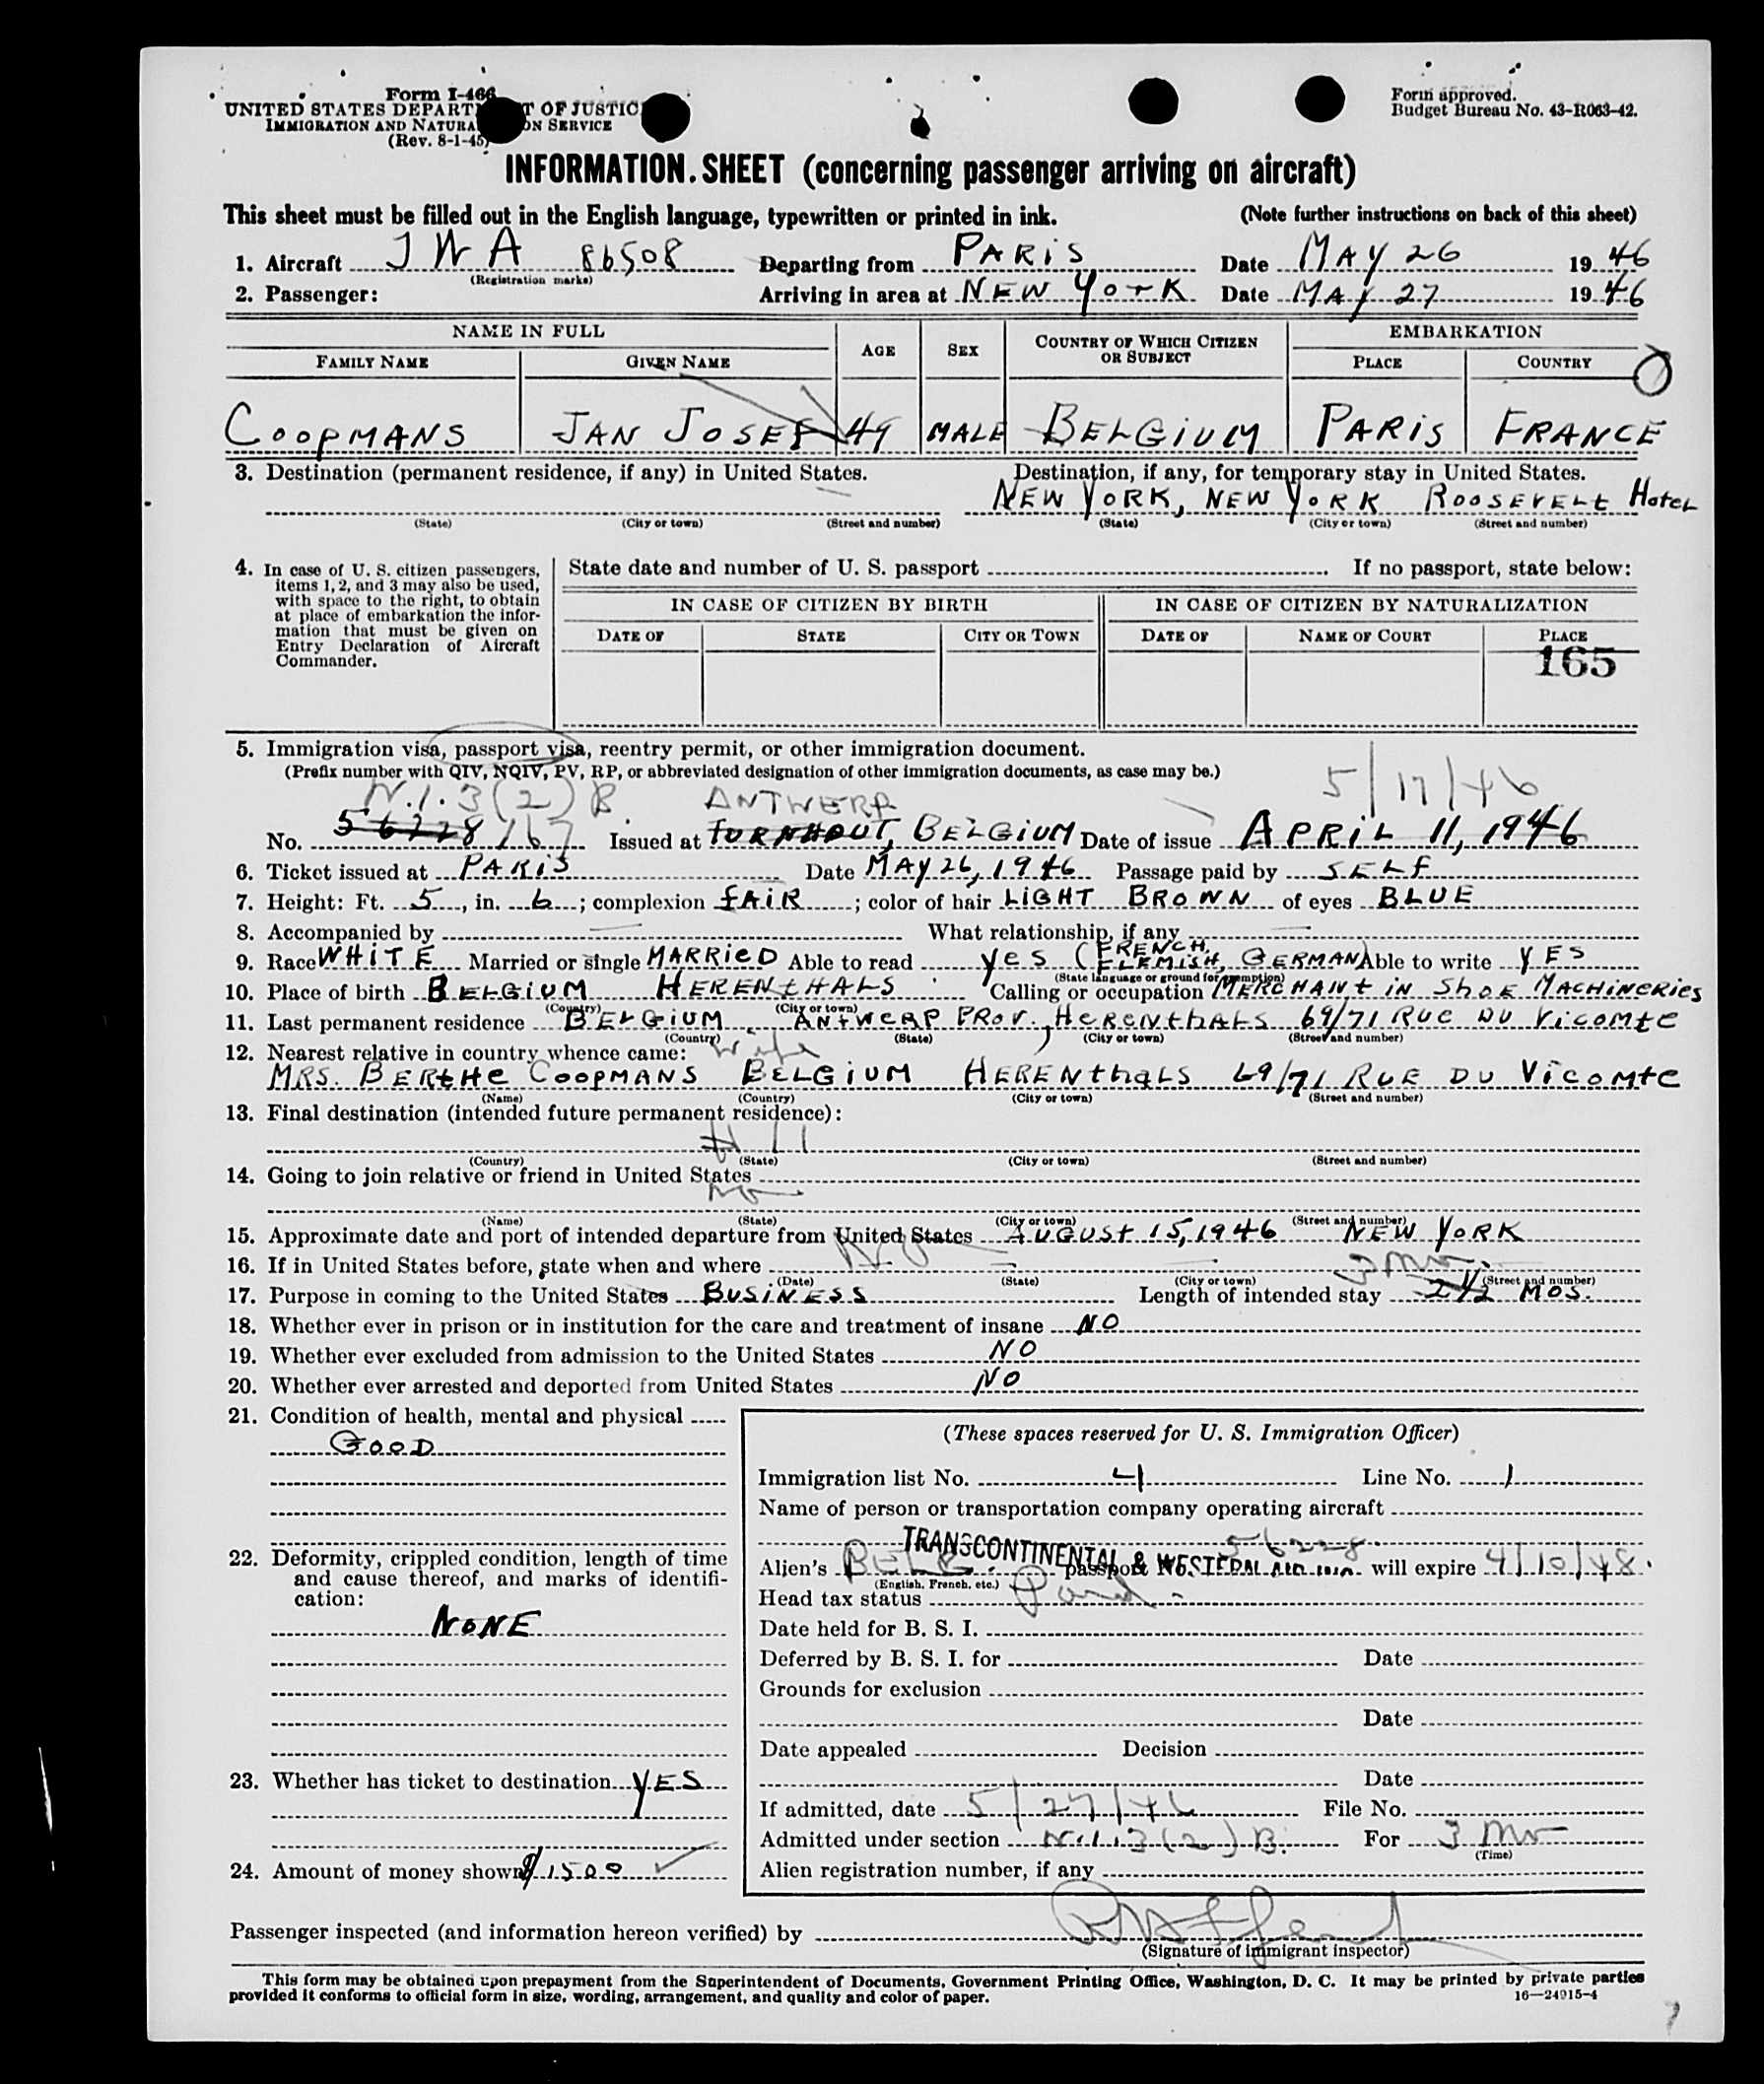 Form I-466
UNITED STATES DEPARTMENT OF JUSTICE
IMMIGRATION AND NATURALIZATION SERVICE
(Rev. 8-1-45)
Form approved.
Budget Bureau No. 43-R063-42.
INFORMATION SHEET (concerning passenger arriving on aircraft)
This sheet must be filled out in the English language, typewritten or printed in ink. (Note further instructions on back of this sheet)
1. Aircraft TWA 86508 Departing from PARIS Date MAY 26 1946
(Registration marks)
2. Passenger: Arriving in area at NEW YORK Date MAY 27 1946
NAME IN FULL AGE SEX COUNTRY OF WHICH CITIZEN OR SUBJECT EMBARKATION
FAMILY NAME GIVEN NAME PLACE COUNTRY
COOPMANS JAN JOSEF 49 MALE BELGIUM PARIS FRANCE
3. Destination (permanent residence, if any) in United States. Destination, if any, for temporary stay in United States.
NEW YORK, NEW YORK ROOSEVELt HOTEL
(State) (City or town) (Street and number) (State) (City or town) (Street and number)
4. In case of U. S. citizen passengers, items 1, 2, and 3 may also be used, with space to the right, to obtain at place of embarkation the information that must be given on Entry Declaration of Aircraft Commander.
State date and number of U. S. passport If no passport, state below:
IN CASE OF CITIZEN BY BIRTH IN CASE OF CITIZEN BY NATURALIZATION
DATE OF STATE CITY OR TOWN DATE OF NAME OF COURT PLACE
165
5. Immigration visa, passport visa, reentry permit, or other immigration document.
(Prefix number with QIV, NQIV, PV, RP, or abbreviated designation of other immigration documents, as case may be.)
N.I. 3(2)B ANTWERP 5/17/46
No. 56228 167 Issued at TURNHOUT, BELGIUM Date of issue APRIL 11, 1946
6. Ticket issued at PARIS Date MAY 26, 1946 Passage paid by SELF
7. Height: Ft. 5, in. 6; complexion FAIR; color of hair LIGHT BROWN of eyes BLUE
8. Accompanied by — What relationship, if any —
9. Race WHITE Married or single MARRIED Able to read yes (FRENCH, FLEMISH, GERMAN) Able to write YES
(State language or ground for exemption)
10. Place of birth BELGIUM HERENtHALS Calling or occupation MERCHANt IN SHOE MACHINERIES
(Country) (City or town)
11. Last permanent residence BELGIUM ANtWERP PROV., HERENthALS 69/71 RUE DU VICOMtE
(Country) (State) (City or town) (Street and number)
12. Nearest relative in country whence came: wife
MRS. BERtHE COOPMANS BELGIUM HERENthALS 69/71 RUE DU VICOMtE
(Name) (Country) (City or town) (Street and number)
13. Final destination (intended future permanent residence):
(Country) (State) (City or town) (Street and number)
14. Going to join relative or friend in United States
no
(Name) (State) (City or town) (Street and number)
15. Approximate date and port of intended departure from United States AUGUSt 15, 1946 NEW YORK
16. If in United States before, state when and where No
(Date) (State) (City or town) (Street and number)
3 Mo.
17. Purpose in coming to the United States BUSINESS Length of intended stay 2 1/2 MOS.
18. Whether ever in prison or in institution for the care and treatment of insane NO
19. Whether ever excluded from admission to the United States NO
20. Whether ever arrested and deported from United States NO
21. Condition of health, mental and physical
GOOD
22. Deformity, crippled condition, length of time and cause thereof, and marks of identification:
NONE
23. Whether has ticket to destination YES
24. Amount of money shown $1500
(These spaces reserved for U. S. Immigration Officer)
Immigration list No. 4 Line No. 1
Name of person or transportation company operating aircraft
TRANSCONTINENTAL & WESTERN AIR
Alien's BELG. passport No. 56228 will expire 4/10/48.
(English, French, etc.)
Head tax status
Date held for B. S. I.
Deferred by B. S. I. for Date
Grounds for exclusion
Date
Date appealed Decision
Date
If admitted, date 5/27/46 File No.
Admitted under section N.I. 3(2)B. For 3 Mo
(Time)
Alien registration number, if any
Passenger inspected (and information hereon verified) by
(Signature of immigrant inspector)
This form may be obtained upon prepayment from the Superintendent of Documents, Government Printing Office, Washington, D. C. It may be printed by private parties
provided it conforms to official form in size, wording, arrangement, and quality and color of paper. 16—24915-4